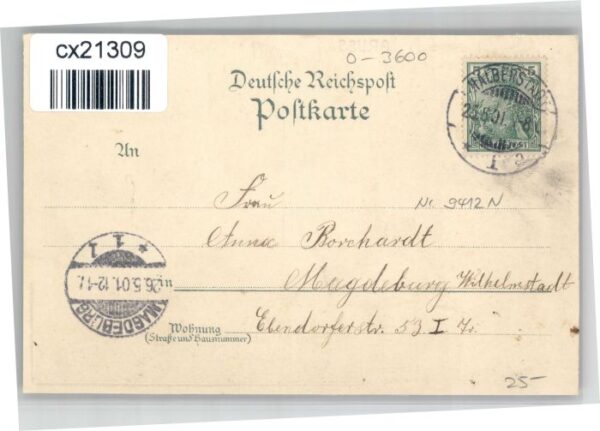 cx21309
0-3600
Deutsche Reichspost
Postkarte
5
HALBERSTADT
An
Frau
Nr 9412 N
Anna Borchardt
in
Magdeburg Wilhelmstadt
MAGDEBURG
26.5.01. 12-1
* 1 1
Wohnung
(Straße und Hausnummer)
Ebendorferstr. 53 I Tr.
25-